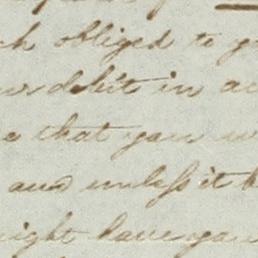 ch obliged to y
ur debit in ac
e that you w
and unless it b
ight have you